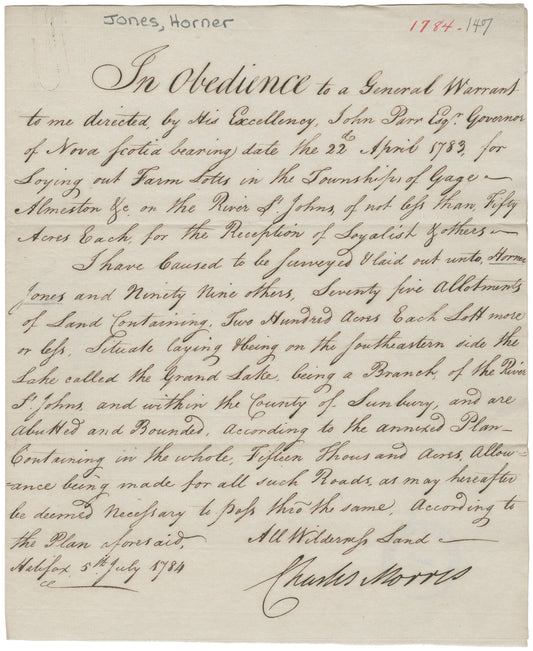 Jones, Horner
1784-147
In Obedience to a General Warrant
to me directed, by His Excellency, John Parr Esqr. Governor
of Nova Scotia bearing date the 22d April 1783, for
Loying out Farm Lotts in the Townships of Gage
Almeston &c. on the River St. Johns, of not less than, Fifty
Acres Each, for the Reception of Loyalist & others
I have Caused to be Surveyed & laid out unto, Horner
Jones and Ninety Nine others, Seventy five Allotments
of Land Containing, Two Hundred Acres Each Lott more
or less, Situate laying & being on the Southeastern side the
Lake called the Grand Lake, being a Branch, of the River
St. Johns, and within the County of Sunbury, and are
Abutted and Bounded, According to the annexed Plan
Containing in the whole, Fifteen Thousand Acres, Allow-
-ance being made for all such Roads, as may hereafter
be deemed Necessary to pass thro the same, According to
the Plan aforesaid, All Wilderness Land
Halifax 5th July 1784
Charles Morris